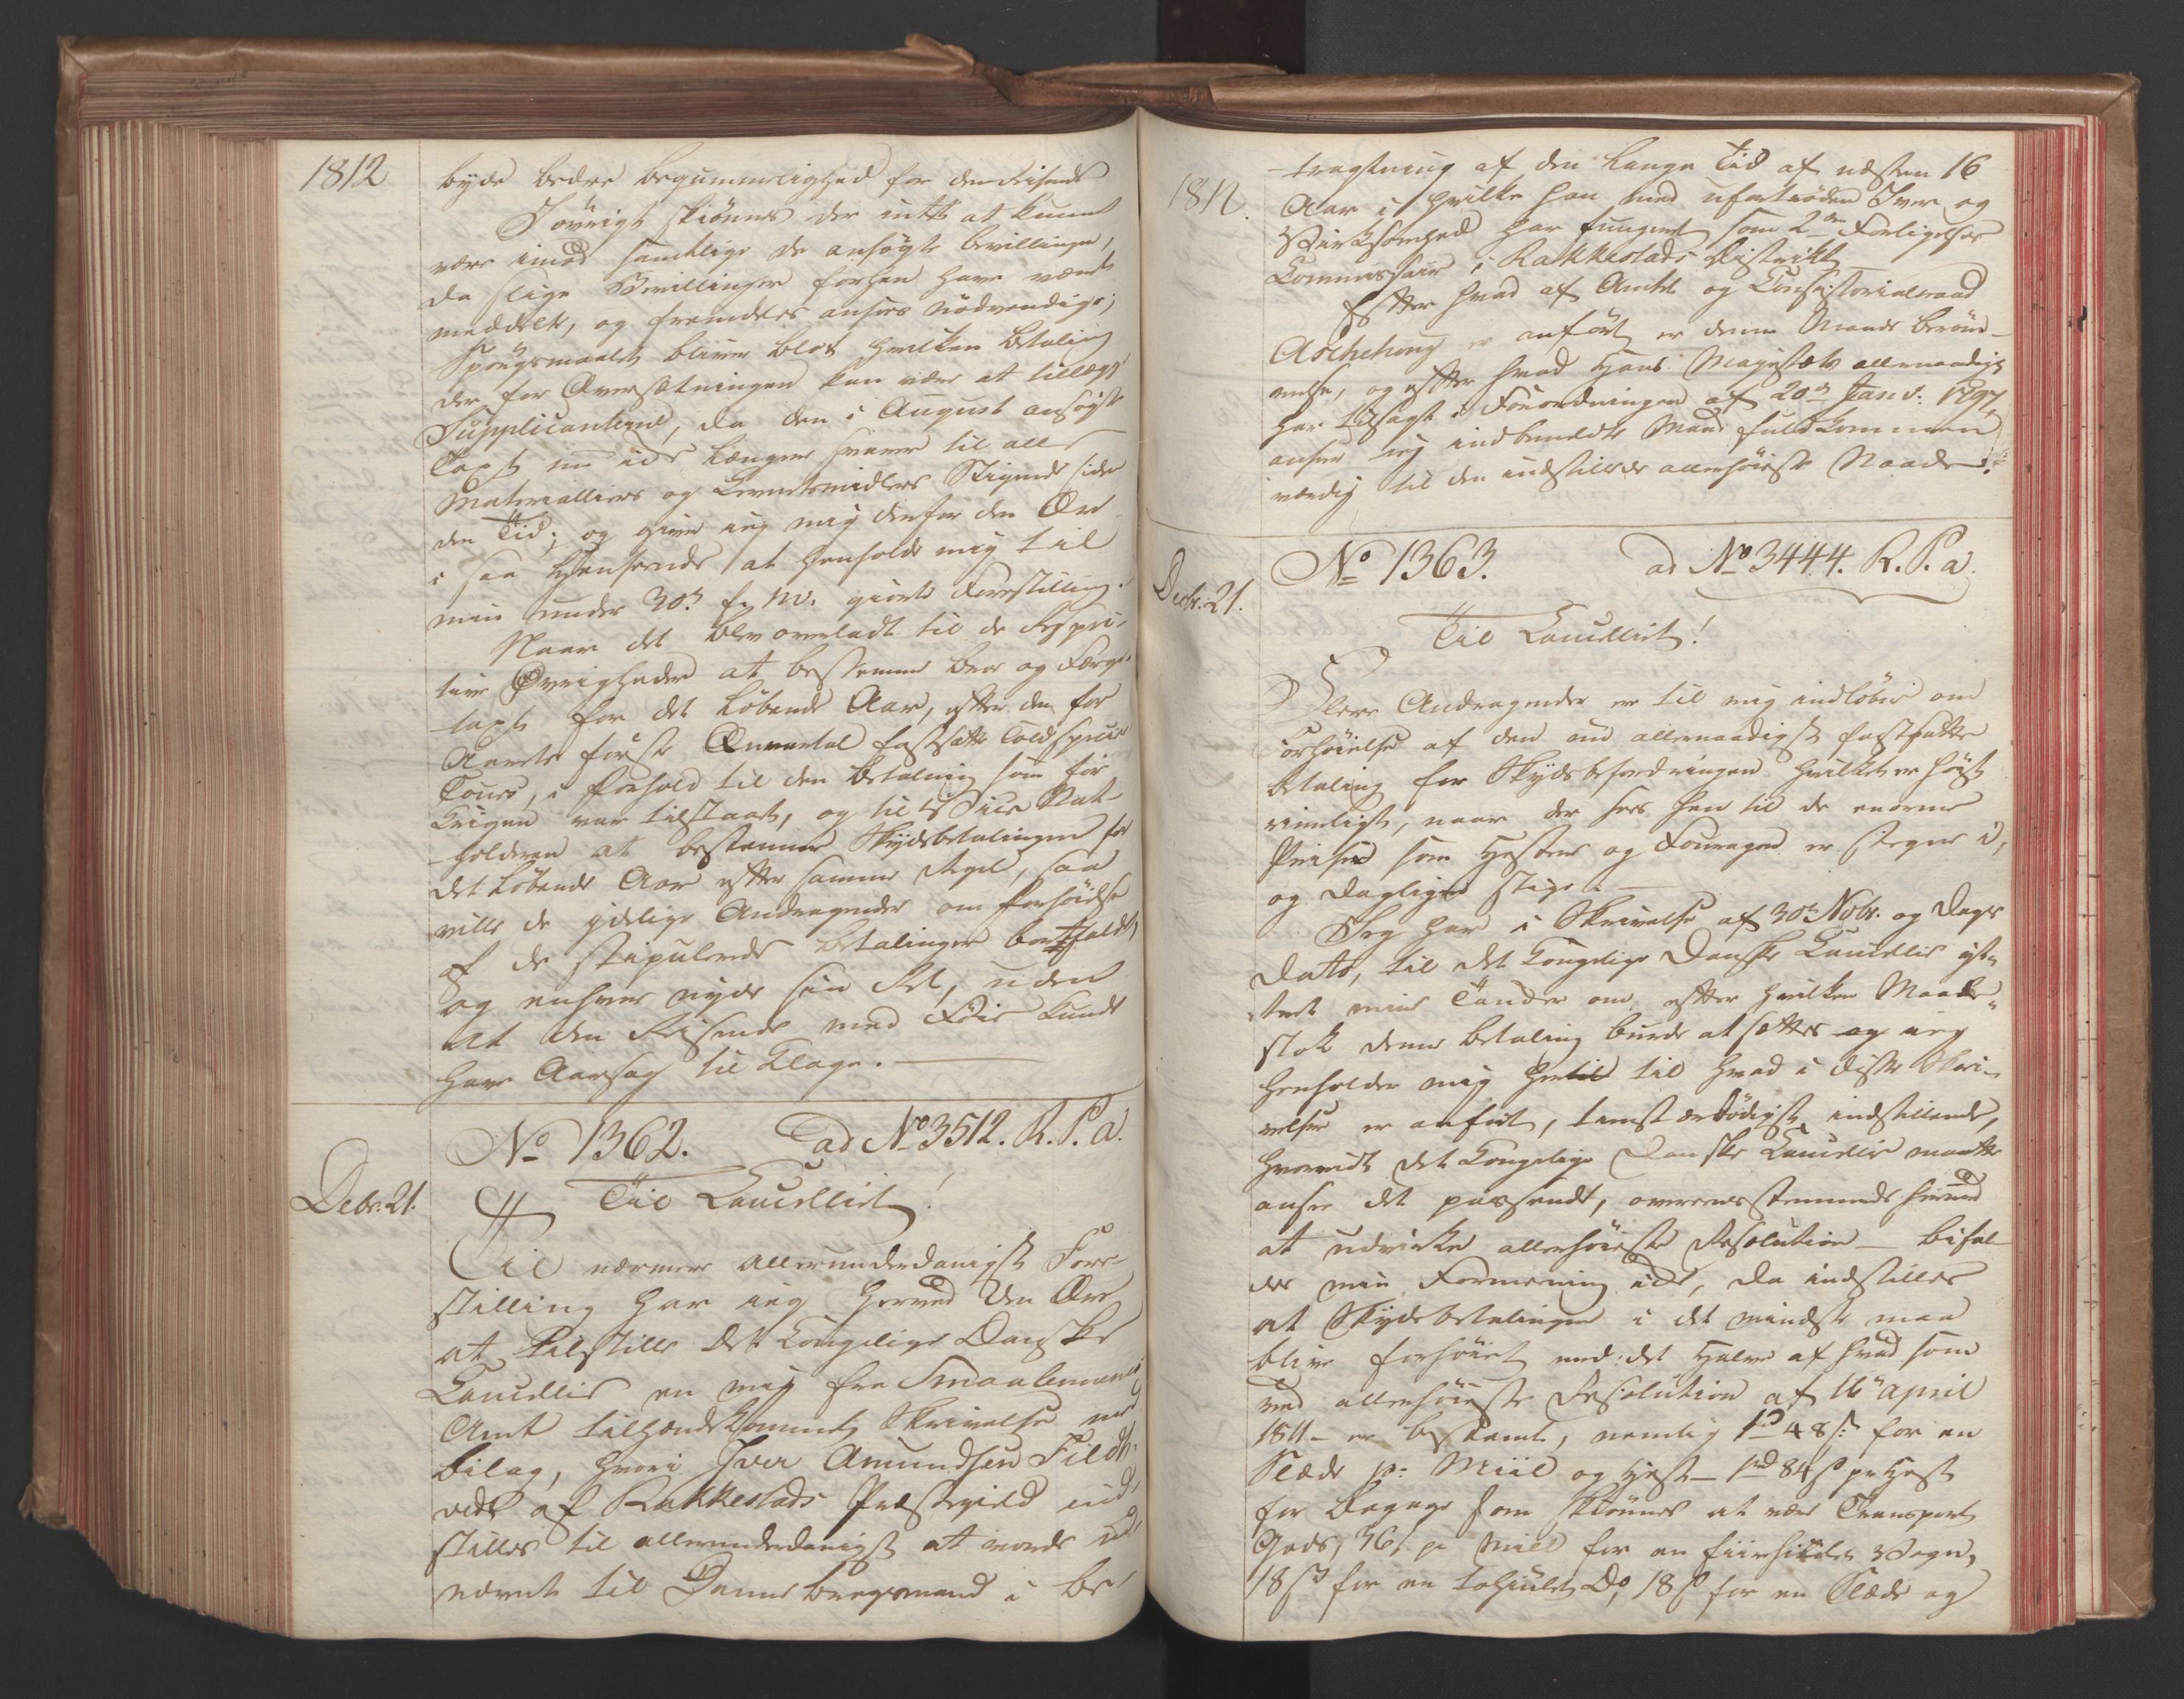 1812
byde bedre beqvemmelighed for den Reisende
Iøvrigt skiønnes der intet at kunne
være imod samtlige de ansøgte Bevillinger,
da slige Bevillinger forhen have været
meddelt, og fremdeles ansees nødvendige;
Spørgsmaalet bliver blot hvilken betaling
der for Oversætningen kan være at tillægge
Supplicanterne, da den i August ansøgte
Taxt nu ikke længere svarer til alle
Materialliers og Levnetsmidlers Stigende siden
den Tid; og giver jeg mig derfor den Ære
i saa Henseende at henholde mig til
min under 30te f. M. giorte Forestilling.
Naar det blev overladt til de respec-
tive Øvrigheder at bestemme Broe og Færge-
taxt for det løbende Aar, efter den for
Aarets første Qvvartal fastsatte Told specie
Cours, i Forhold til den betaling som før
Krigen var tilstaaet, og til Stift
holderen at bestemme Skydsbetalingen for
det løbende Aar efter samme Regel, saa
ville de idelige Andragender om Forhøielse
af de stipulerede betalinger bortfalde,
og enhver nyde sin Ret, uden
at den Reisende med Føie kunde
have Aarsag til Klage.
No 1362. ad No 3512. R. P. a.
Debr. 21. Til Cancelliet!
Til nærmere allerunderdanigst Fore-
stilling har jeg herved den Ære
at tilstille det Kongelige Danske
Cancellie en mig fra Smaalenenes
Amt tilhændekommet Skrivelse med
bilag, hvori Iver Amundsen Fildt-
vedt af Rakkestads Præstegield ind-
stilles til allerunderdanigst at vorde ud-
nævnt til Dannebrogsmand i be-
1812.
-tragtning af den lange Tid af næsten 16
Aar i hvilke han med ufortrøden Iver og
Virksomhed har fungeret som 2den Forligelses
Commissair i Rakkestads District
Efter hvad af Amtet og Consistorialraad
Aschehoug er anført er denne Mands berøm-
melse, og efter hvad Hans Majestæt allernaadigst
har tilsagt i Forordningen af 20de Janv. 1797,
anseer jeg indbemeldte Mand fuldkommen
værdig til den indstillede allerhøieste Naade.
Decbr. 21. No 1363. ad No 3444. R. P. a.
Til Cancelliet!
Flere Andragender er til mig indløbne om
Forhøielse af den nu allernaadigst fastsatte
betaling for Skydsbefordringen hvilket er høist
rimeligt, naar der sees hen til de enorme
Priser som Hester og Fourage er stegne i,
og dagligen stige.
Jeg har i Skrivelse af 30te Novbr. og Dags
Dato, til det Kongelige Danske Cancellie ytt-
ret mine Tanker om efter hvilken Maale-
stok denne betaling burde at sættes og jeg
henholder mig hertil til hvad i disse Skri-
velser er anført, tienstærbødigst indstillende,
hvorvidt det Kongelige Danske Cancellie maatte
ansee det passende, overensstemmende hermed
at udvirke allerhøieste Resolution — bifal-
des min Formening ikke, da indstilles
at Skydsbetalingen i det mindste maa
blive forhøiet med det Halve af hvad som
ved allerhøieste Resolution af 16de April
1811 — er bestemt, nemlig 1rd 48 s. for en
Slæde pr. Miil og Hest — 1rd 84 s. pr Hest
for bagage som skiønnes at være Transport
Gods, 36 s pr Miil for en fiirhiulet Vogn,
18 s. for en tohiulet Do, 18 s for en Slæde og